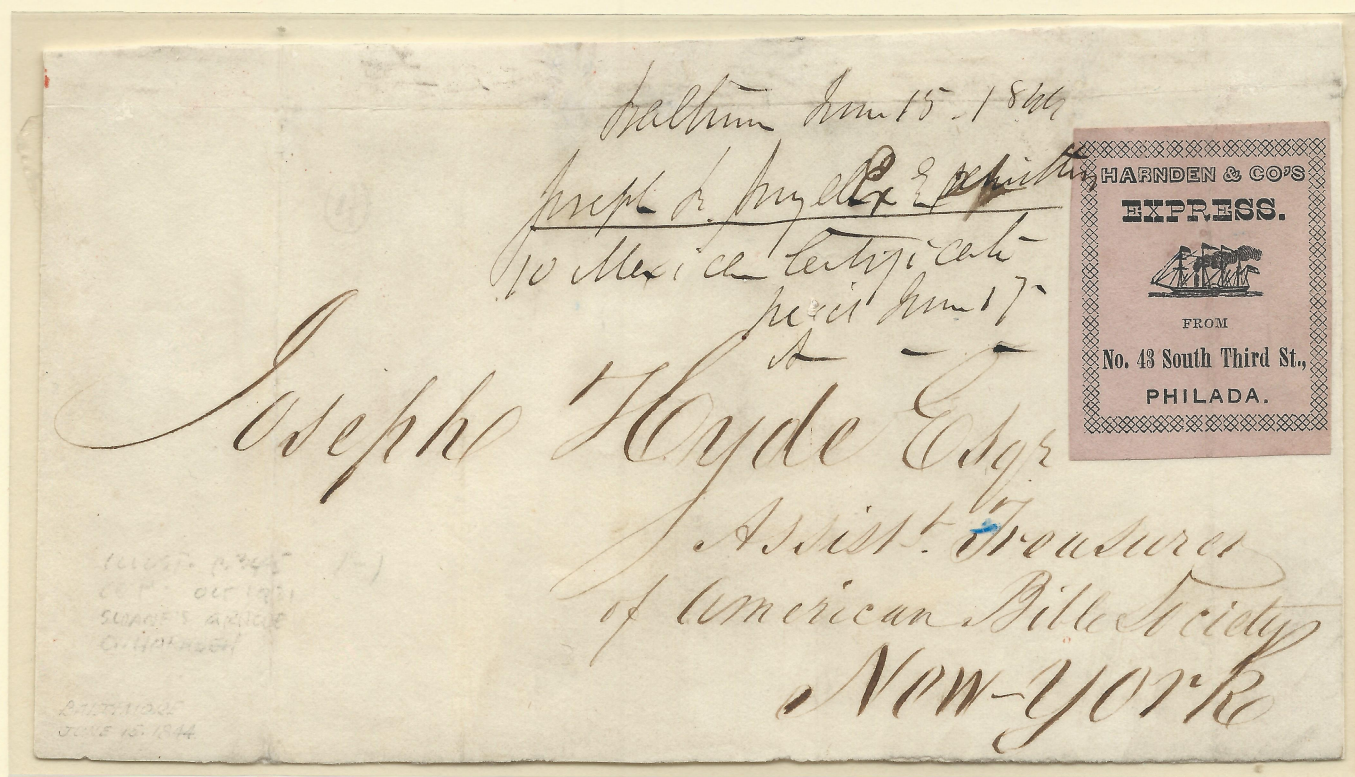 Baltimore June 15 - 1844
Joseph
10 Mexican Certificate
June 17
HARNDEN & CO'S
EXPRESS.
FROM
No. 43 South Third St.,
PHILADA.
Joseph Hyde Esqr
Assist. Treasurer
of American Bible Society
New-York
OCT 1931
BALTIMORE
JUNE 15. 1844